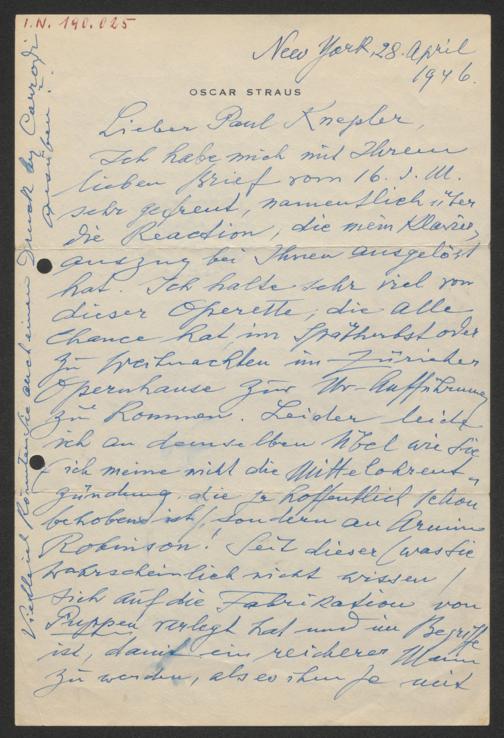 I.N. 190.025
New York, 28. April
1946.
OSCAR STRAUS
Lieber Paul Knepler,
Ich habe mich mit Ihrem
lieben Brief vom 16. d. M.
sehr gefreut, namentlich über
die Reaction, die mein Klavier,
auszug bei Ihnen ausgelöst
hat. Ich halte sehr viel von
dieser Operette, die alle
Chance hat, im Spätherbst oder
zu Weihnachten im Züricher
Opernhause zur Ur-Aufführung
zu kommen. Leider leide
ich an demselben Übel wie Sie
(ich meine nicht die Mittelohrent-
zündung, die ja hoffentlich schon
behoben ist), sondern an Armin
Robinson! Seit dieser (was Sie
wahrscheinlich nicht wissen)
sich auf die Fabrikation von
Puppen verlegt hat und im Begriffe
ist, damit ein reicherer Mann
zu werden, als es ihm je mit
Vielleicht könnten Sie auch einen Druck bei
ausüben!